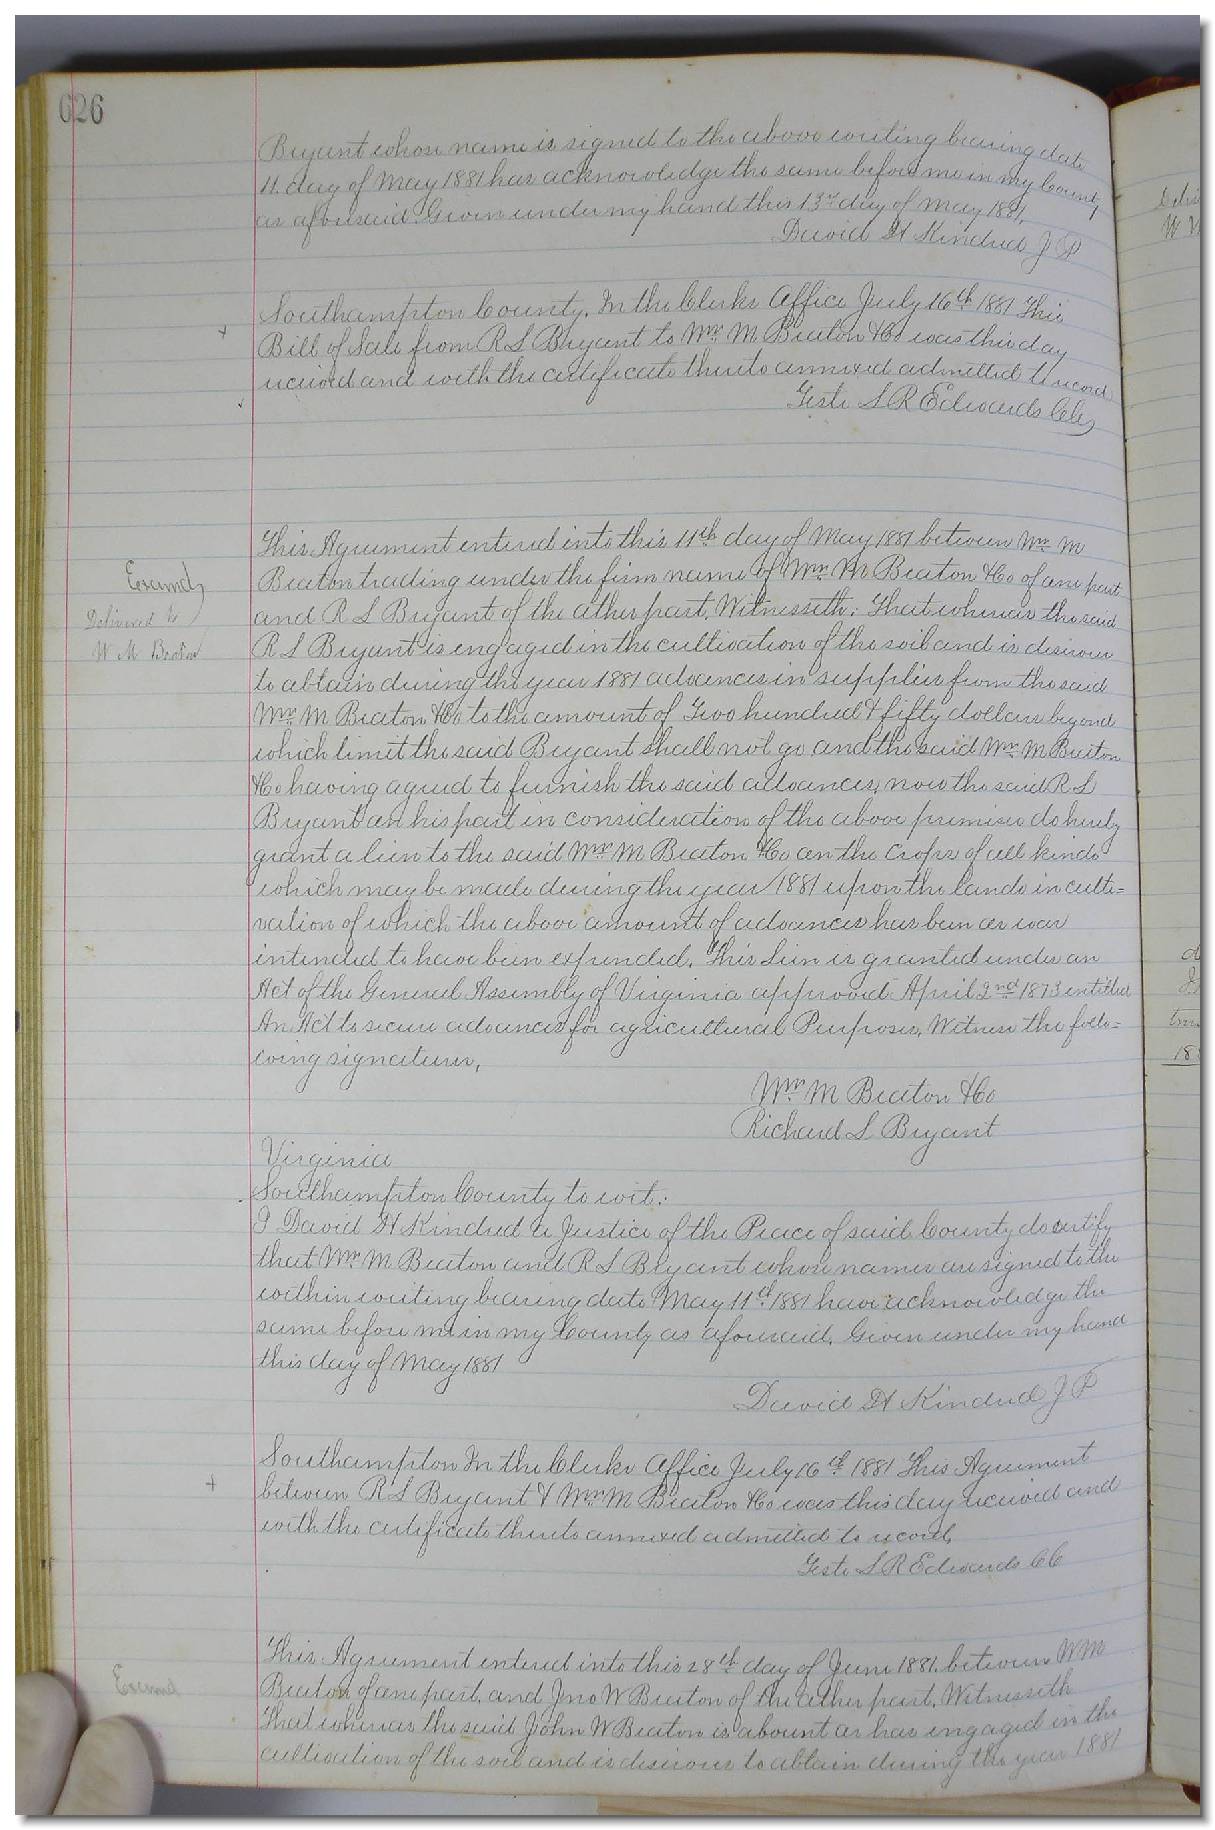 626
Bryant whose name is signed to the above writing bearing date
11. day of May 1881 has acknowledge the same before me in my County
as aforesaid. Given under my hand this 13th day of May 1881.
David H Kindred J P
Southampton County. In the Clerks Office July 16th 1881 This
Bill of Sale from R S Bryant to Wm M Beaton & Co was this day
received and with the certificate thereto annexed admitted to record
Teste L R Edwards Clk
This Agreement entered into this 11th day of May 1881 between Wm M
Beaton trading under the firm name of Wm M Beaton & Co of one part
Examd
and R S Bryant of the other part. Witnesseth: That whereas the said
Delivered to
R S Bryant is engaged in the cultivation of the soil and is desirous
W M Beaton
to obtain during the year 1881 advances in supplies from the said
Wm M Beaton & Co to the amount of Two hundred & fifty dollars beyond
which limit the said Bryant shall not go and the said Wm M Beaton
& Co having agreed to furnish the said advances, now the said R S
Bryant on his part in consideration of the above premises do hereby
grant a lien to the said Wm M Beaton & Co on the crops of all kinds
which may be made during the year 1881 upon the lands in culti=
vation of which the above amount of advances has been or was
intended to have been expended. This Lien is granted under an
Act of the General Assembly of Virginia approved April 2nd 1873 entitled
An Act to secure advances for agricultural Purposes, Witness the follo=
wing signatures,
Wm M Beaton & Co
Richard S Bryant
Virginia
Southampton County to wit:
I David H Kindred a Justice of the Peace of said County do certify
that Wm M Beaton and R S Bryant whose names are signed to the
within writing bearing date May 11th 1881 have acknowledge the
same before me in my County as aforesaid. Given under my hand
this day of May 1881
David H Kindred J P
Southampton In the Clerks Office July 16th 1881 This Agreement
between R S Bryant & Wm M Beaton & Co was this day received and
with the certificate thereto annexed admitted to record,
Teste L R Edwards C C
This Agreement entered into this 28th day of June 1881. between W M
Examd
Beaton of one part. and Jno W Beaton of the other part. Witnesseth
That whereas the said John W Beaton is abount or has engaged in the
cultivation of the soil and is desirous to obtain during the year 1881